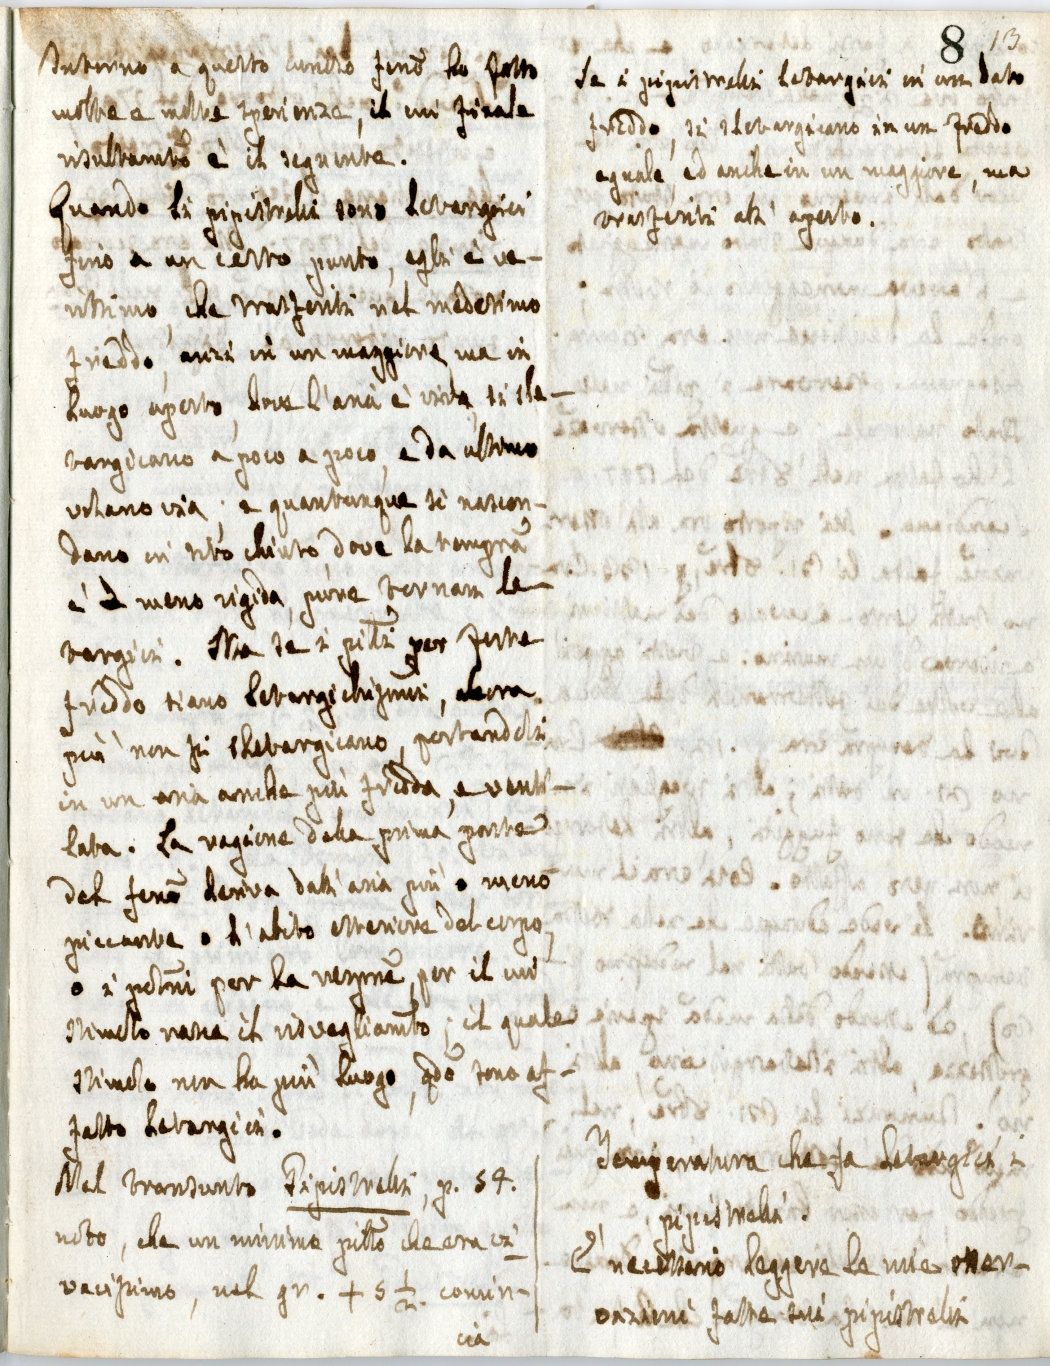 8 13
Intorno a questo curioso fenõ ho fatto
molte e molte sperienze, il cui finale
risultamto è il seguente.
Quando li pipistrelli sono letargici
fino a un certo punto, egli è ve-
rissimo, che trasferiti nel medesimo
freddo, anzi in un maggiore, ma in
luogo aperto, dove l'aria è viva, si sle-
targicano a poco a poco, e da ultimo
volano via; e quantunque si nascon-
dano in sito chiuso dove la tempra
è meno rigida, pure tornan le-
targici. Ma se i pilli per forte
freddo siano letargichissimi, allora
più non si sletargicano, portandoli
in un aria anche più fredda, e venti-
lata. La ragione della prima parte
del fenõ deriva dall'aria più o meno
piccante o l'abito esteriore del corpo,
o i polmni per la respne, per il cui
stimolo nasce il risvegliamto; il quale
stimolo non ha più luogo, qdo sono af-
fatto letargici.
Nel transunto Pipistrelli, p. 54.
noto, che un minimo pillo che era vi-
vacissimo, nel gr. + 5 1/2. comin-
cia
se i pipistrelli letargici in un dato
freddo, si sletargicano in un freddo
eguale, ed anche in un maggiore, ma
trasferiti all'aperto.
Temperatura che fa letargici i
pipistrelli.
E' necessario leggere le mie osser-
vazioni fatte sui pipistrelli